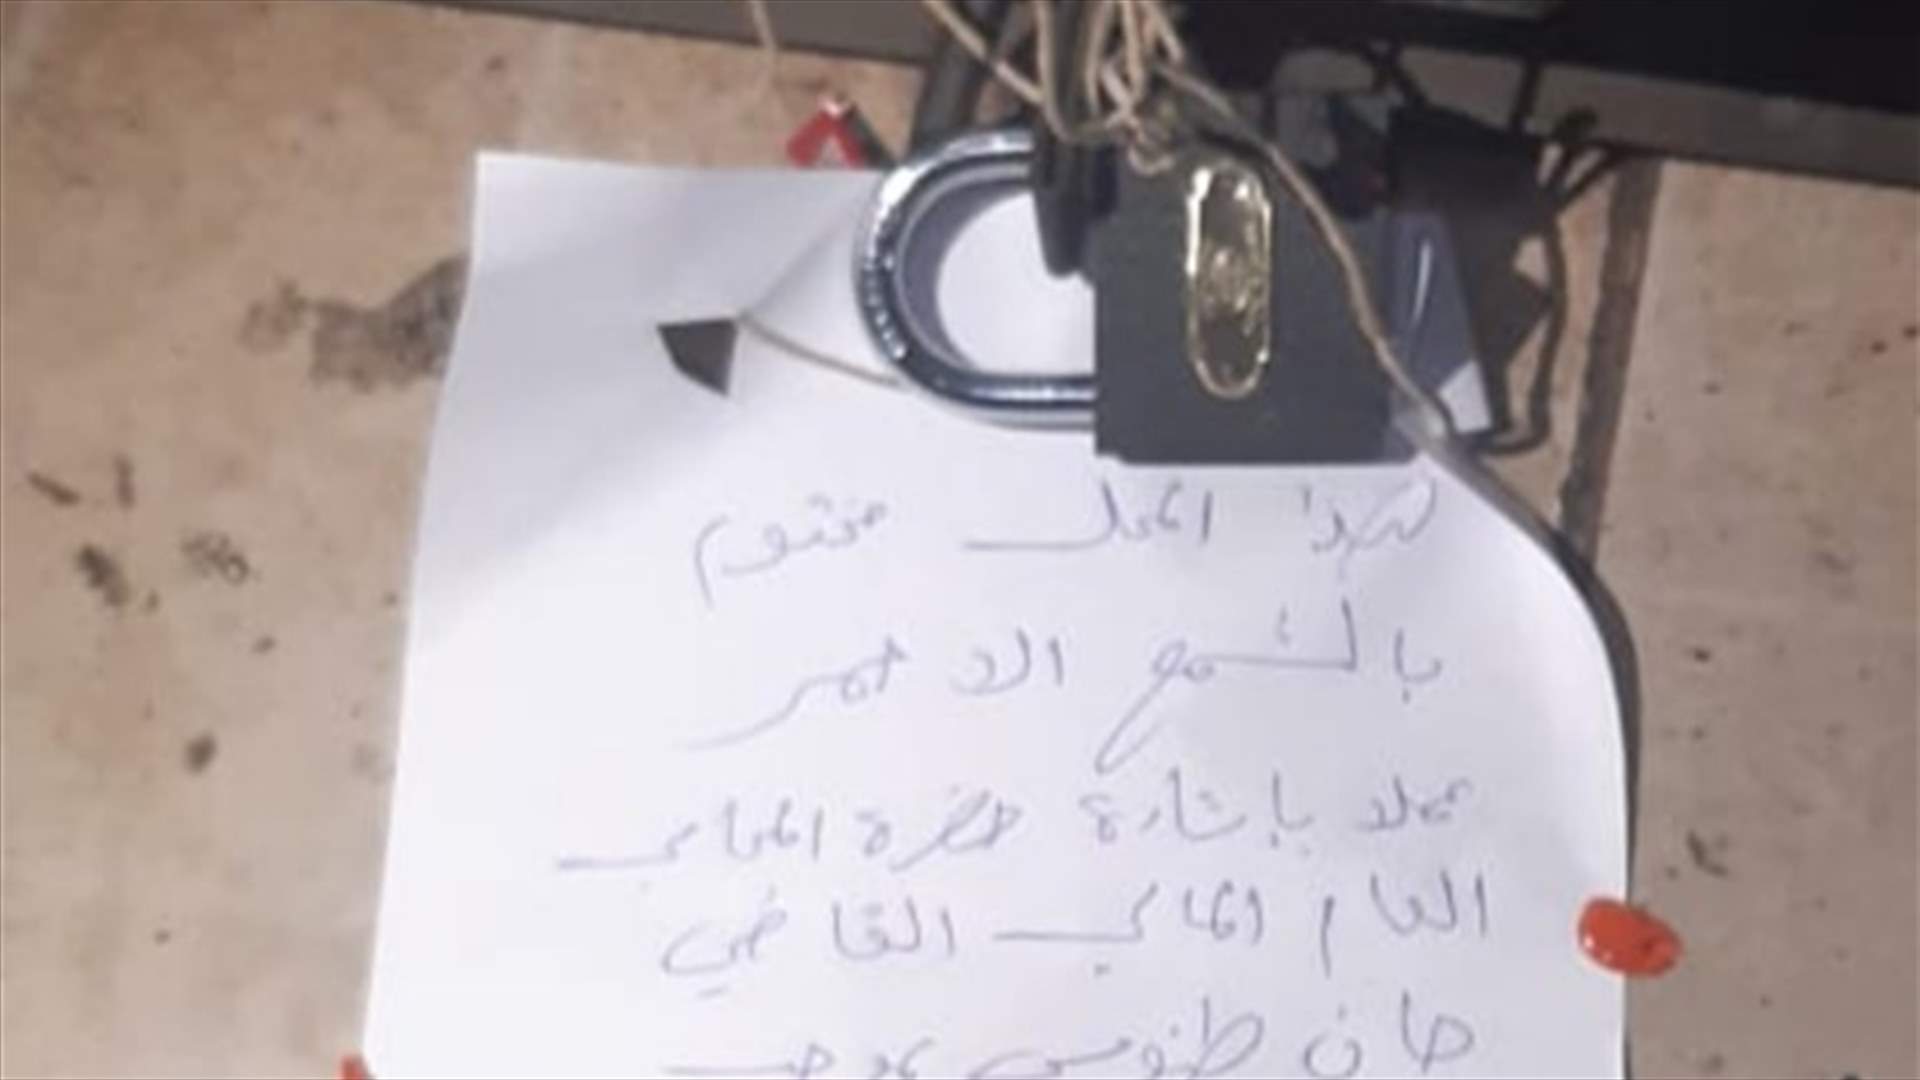 هذا المحل مختوم
بالشمع الاحمر
عملا باشارة حضرة المحامي
العام المالي القاضي
جان طنوس بموجب